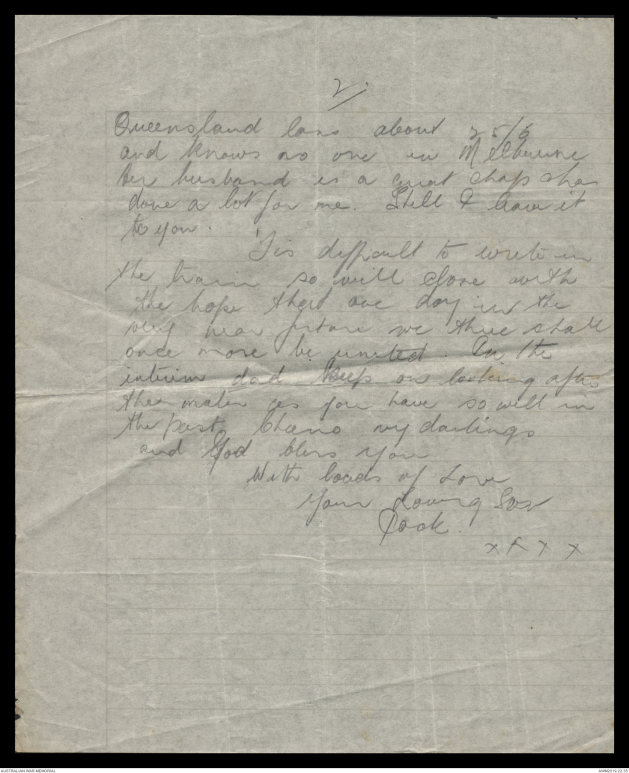 2/.
Queensland lass about 25/6
and knows no one in Melbourne
Her husband is a great chap & has
done a lot for me. Still I leave it
to you.
'Tis difficult to write in
the train so will close with
the hope that one day in the
very near future we three shall
once more be united. In the
interim dad keep on looking after
the mater as you have so well in
the past. Cheerio my darlings
and God bless you
With loads of Love
Your loving Son
Jack.
x x x x
AUSTRALIAN WAR MEMORIAL